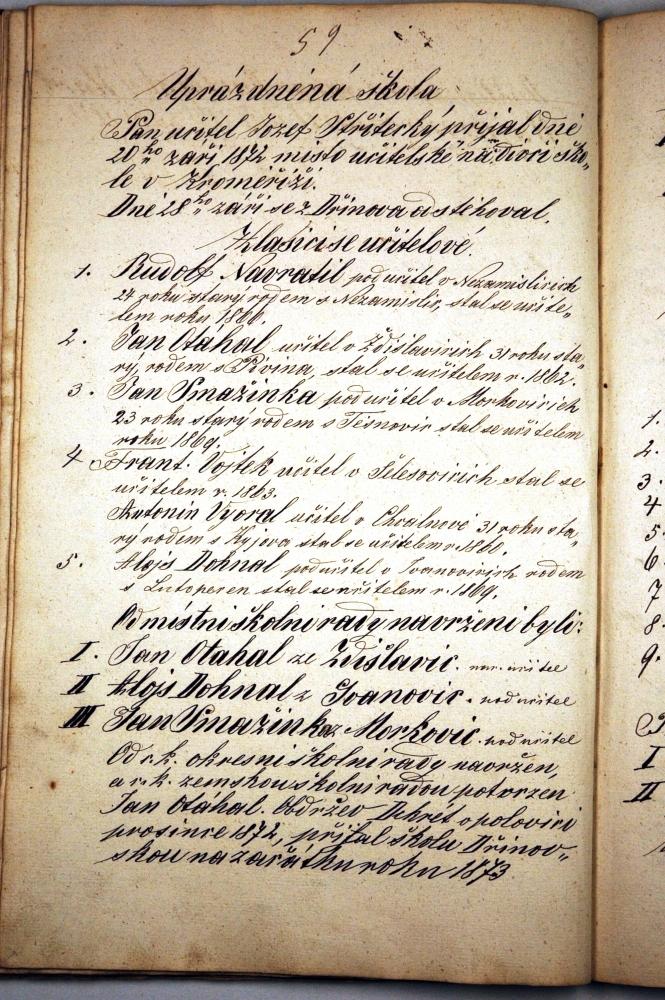 59
Uprázdněná škola
Pan učitel Jozef Střítecký přijal dne
20ho září 1872 místo učitelské na školi ško„
le v Kroměříži.
Dne 28ho září se z Dřínova odstěhoval.
Hlásící se učitelové.
1. Rudolf Navrátil pod učitel v Nezamislicich
24 roku starý rodem s Nezamislic, stal se učite„
lem roku 1866.
2. Jan Otáhal učitel v Zdislavicich 31 roku sta„
rý, rodem s Pivina, stal se učitelem r. 1862.
3. Jan Smažinka pod učitel v Morkovicich
23 roku starý rodem s Těšnovic stal se učitelem
roku 1869.
4 Frant. Vojtek učitel v Šelešovicich stal se
učitelem r. 1863.
Antonin Vyoral učitel v Chvalnově 31 roku sta„
rý rodem s Kyjova stal se učitelem r. 1860.
5. Alojs Dohnal pod učitel v Ivanovicich rodem
s Lutoperen stal se učitelem r. 1869.
Od místní školní rady navrženi byli:
I. Jan Otahal ze Zdislavic. učitel
II Alojs Dohnal z Ivanovic. pod učitel
III Jan Smažinka z Morkovic. pod učitel
Od c. k. okresní školní rady navržen,
a c. k. zemskou školní radou potvrzen
Jan Otáhal. Obdržev Dekrét v polovici
prosince 1872, přijal školu Dřinov„
skou na začátku roku 1873